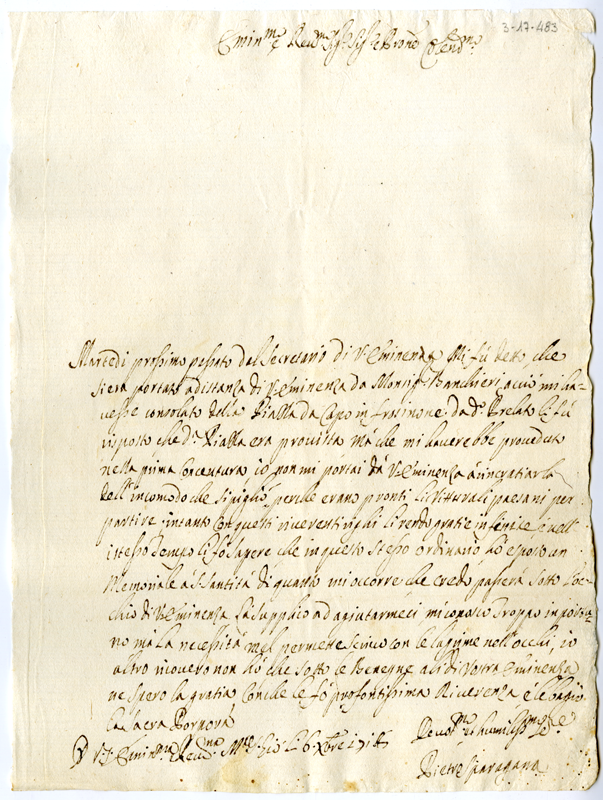 3-17-483
Emin.mo e Rev.mo Sig.r Sig.r e Pron.e Col.mo
Martedi prossimo passato dal Secretario di V. Eminenza Mi fù detto, che
si era portato ad istanza di V. Eminenza da Monsig.r Banchieri, acciò mi ha-
vesse consolato della Piazza da Capo in Frosinone da d.o Prelato li fù
risposto che d.a Piazza era provista mà che mi haverebbe proveduto
nella prima congentura io non mi portai dà V. Eminenza à ringratiarla
dell'incomodo che si pigliò, perche erano pronti li Vitturali paesani per
partire intanto con questi riverenti righi li rendo gratie infinite, e nell'
istesso tempo li fò sapere che in questo stesso ordinario hò esposto un
Memoriale à S. Santità di quanto mi occorre che credo passerà sotto l'oc-
chio di V. Eminenza la supplico ad ajutarmeci mi conosco troppo inportu-
no mà la necessità mel permette scrivo con le lagrime nell'occhi, io
altro ricovero non hò che sotto le Benegne ali di Vostra Eminenza
ne spero la gratia con che le fò profontissima Riverenza e le bagio
la Sacra Porpora
D V. Emin.za Rev.ma M.te S. Gio: li 6 Xbre
Devot.mo et humiliss.mo
Pietro Sparagana